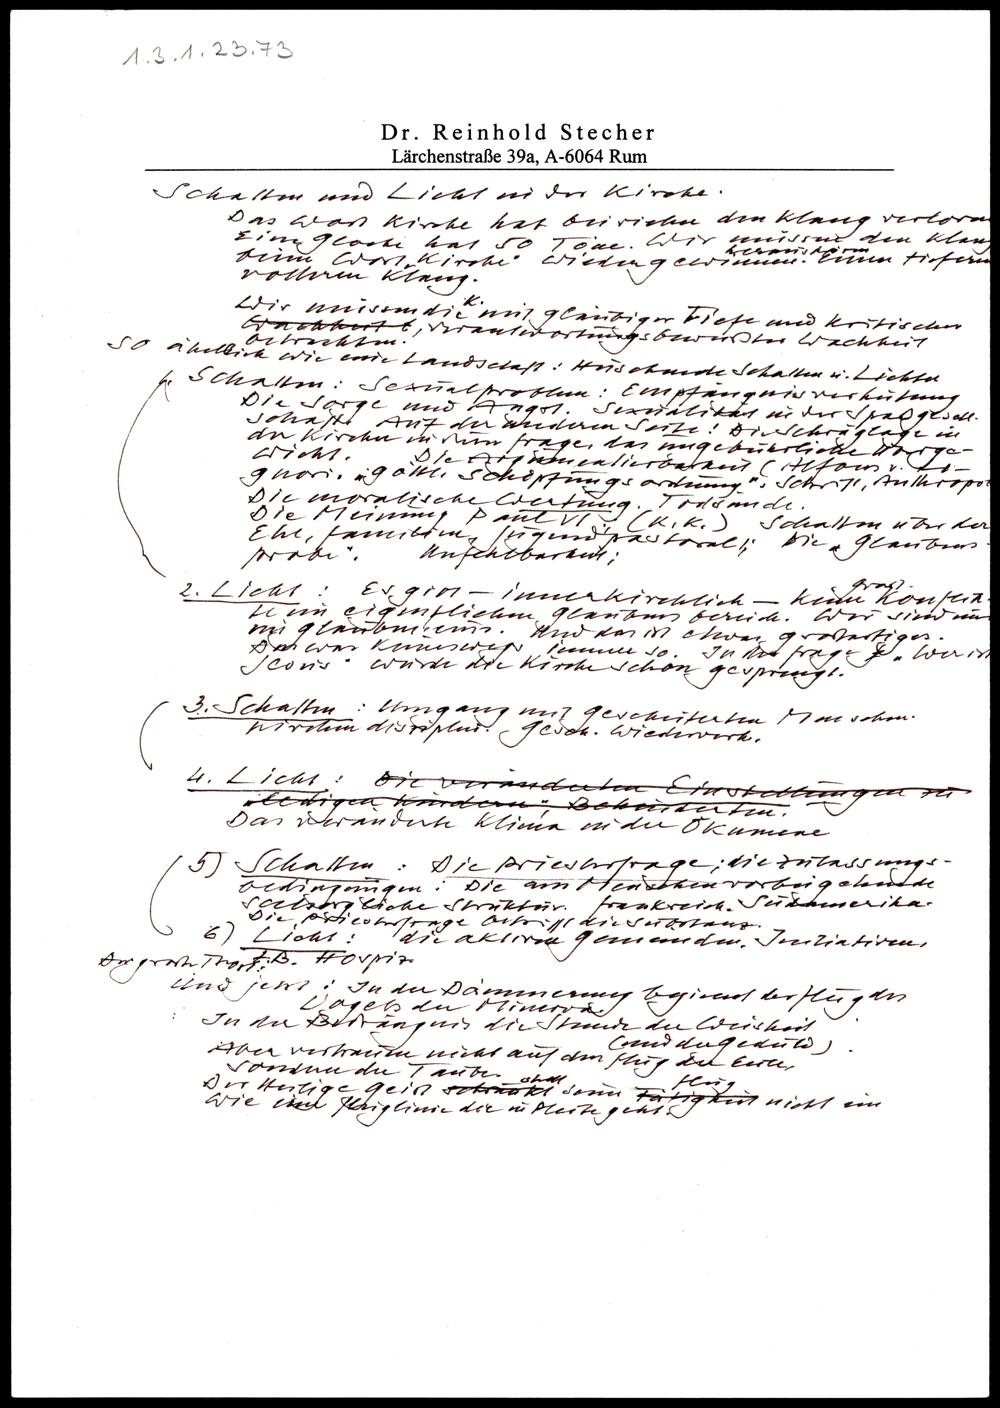 1.3.1.23.73
Dr. Reinhold Stecher
Lärchenstraße 39a, A-6064 Rum
Schatten und Licht in der Kirche.
Das Wort Kirche hat bei vielen den Klang verloren
Eine Glocke hat 50 Töne. Wir müssen den Klang
beim Wort "Kirche" wieder gewinnen. Einen tieferen
volleren Klang.
Wir müssen die K. mit gläubiger Tiefe und kritischer
Wachheit, verantwortungsbewußter Wachheit
betrachten.
So ähnlich wie eine Landschaft: Huschende Schatten u. Lichter
1. Schatten: Sexualproblem: Empfängnisverhütung
Die Sorge und Angst. Sexualität in der Spaßgesell-
schaft. Auf der anderen Seite: Die Schräglage in
der Kirche in dieser Frage, das ungebührliche Überge-
wicht. Die Argumentierbarkeit (Alfons v. Li-
guori. "göttl. Schöpfungsordnung". Schrift, Anthropo
Die moralische Wertung. Todsünde.
Die Meinung Paul VI. (K.K.) Schatten über der
Ehe, Familien, Jugendpastoral; Die "Glaubens-
probe". Unfehlbarkeit;
2. Licht: Es gibt - innerkirchlich - keine groß. Konflik-
te im eigentlichen Glaubensbereich. Wir sind uns
im Glauben eins. Und das ist etwas großartiges.
Das war keineswegs immer so. In der Frage "Wer ist
Jesus" wurde die Kirche schon gesprengt.
3. Schatten: Umgang mit gescheiterten Menschen.
Kirchendisziplin. Gesch. Wiederverh.
4. Licht: Die veränderten Einstellungen zu
"ledigen Kindern", Behinderten.
Das veränderte Klima in der Ökumene
5) Schatten: Die Priesterfrage; die Zulassungs-
bedingungen: Die am Menschen vorbeigehende
seelsorgliche Struktur. Frankreich. Südamerika.
Die Priesterfrage betrifft die Substanz.
6) Licht: die aktiven Gemeinden. Initiativen,
z.B. Hospiz
Der große Trost:
Und jetzt: In der Dämmerung beginnt der Flug des
Vogels der Minerva
In der Bedrängnis die Stunde der Weisheit
(und der Geduld)
Aber vertrauen nicht auf den Flug der Eule,
sondern der Taube
Der Heilige Geist schränkt stellt seine Tätigkeit Flug nicht ein
Wie eine Fluglinie die in Pleite geht.